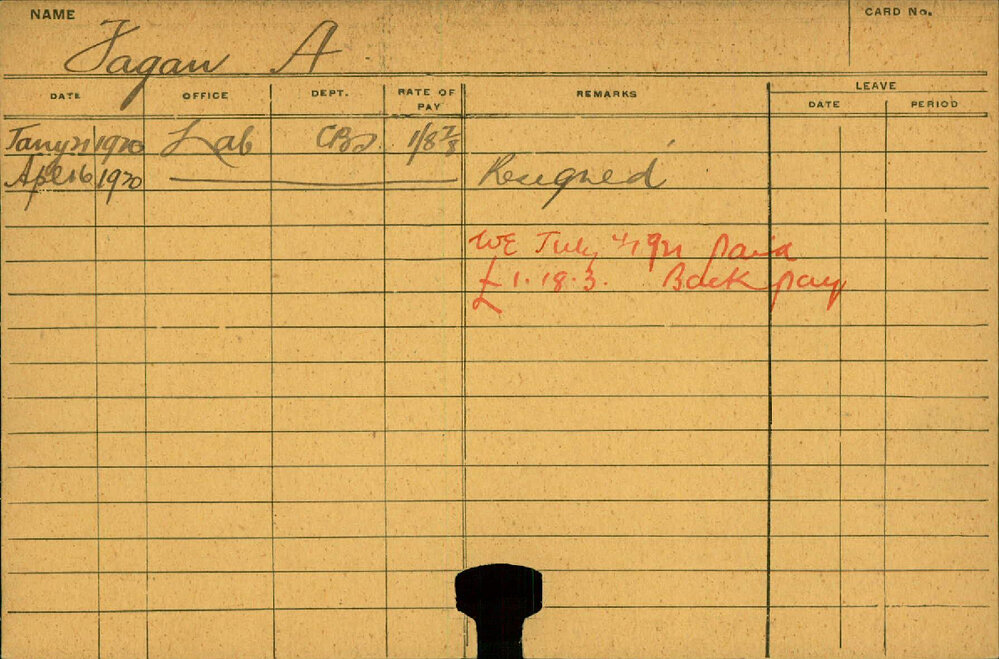 NAME CARD No.
Fagan A
DATE OFFICE DEPT. RATE OF PAY REMARKS LEAVE
DATE PERIOD
Jany 21 1920 Lab 1/8 7/8
April 16 1920 Resigned
WE July 1921 paid
£1.18.3. Back pay